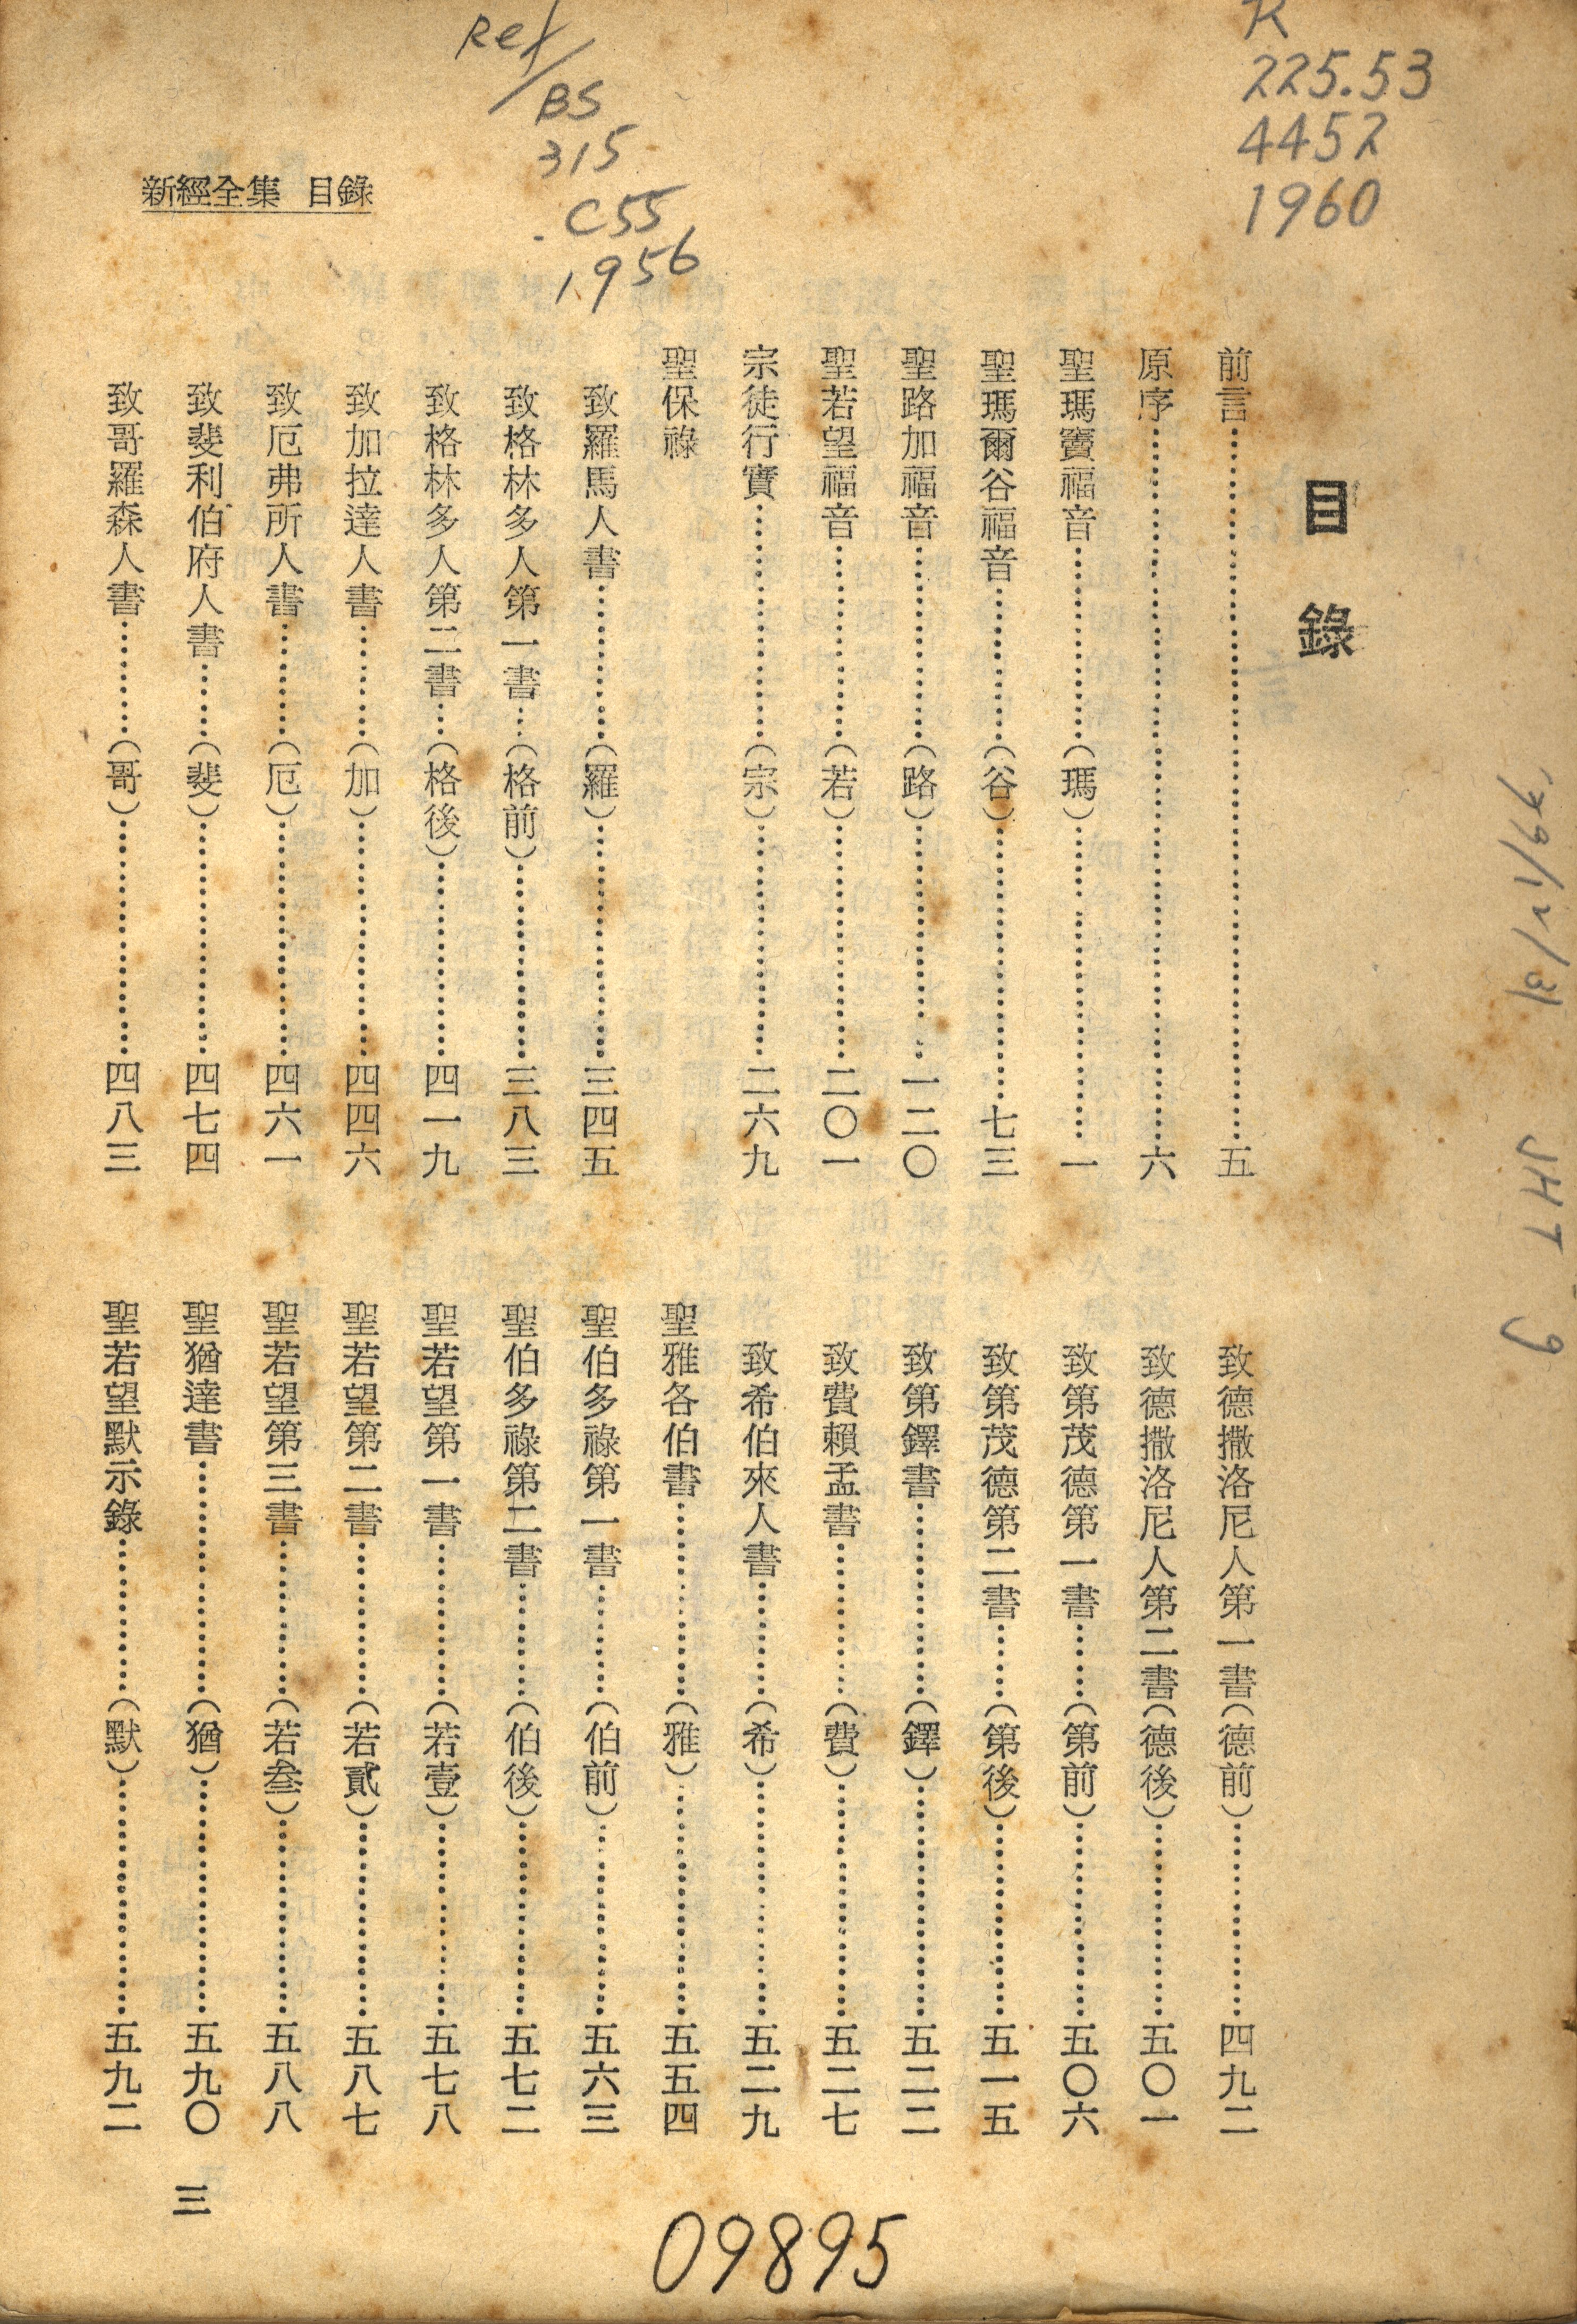 Ref
BS
315
.C55
1956
R
225.53
4452
1960
新經全集 目錄
目錄
前言……五
原序……六
聖瑪竇福音……(瑪)……一
聖瑪爾谷福音……(谷)……七三
聖路加福音……(路)……一二〇
聖若望福音……(若)……二〇一
宗徒行實……(宗)……二六九
聖保祿
致羅馬人書……(羅)……三四五
致格林多人第一書…(格前)……三八三
致格林多人第二書…(格後)……四一九
致加拉達人書……(加)……四四六
致厄弗所人書……(厄)……四六一
致斐利伯府人書……(斐)……四七四
致哥羅森人書……(哥)……四八三
致德撒洛尼人第一書(德前)……四九二
致德撒洛尼人第二書(德後)……五〇一
致第茂德第一書……(第前)……五〇六
致第茂德第二書……(第後)……五一五
致第鐸書……(鐸)……五二二
致費賴孟書……(費)……五二七
致希伯來人書……(希)……五二九
聖雅各伯書……(雅)……五五四
聖伯多祿第一書……(伯前)……五六三
聖伯多祿第二書……(伯後)……五七二
聖若望第一書……(若壹)……五七八
聖若望第二書……(若貳)……五八七
聖若望第三書……(若叁)……五八八
聖猶達書……(猶)……五九〇
聖若望默示錄……(默)……五九二
三
09895